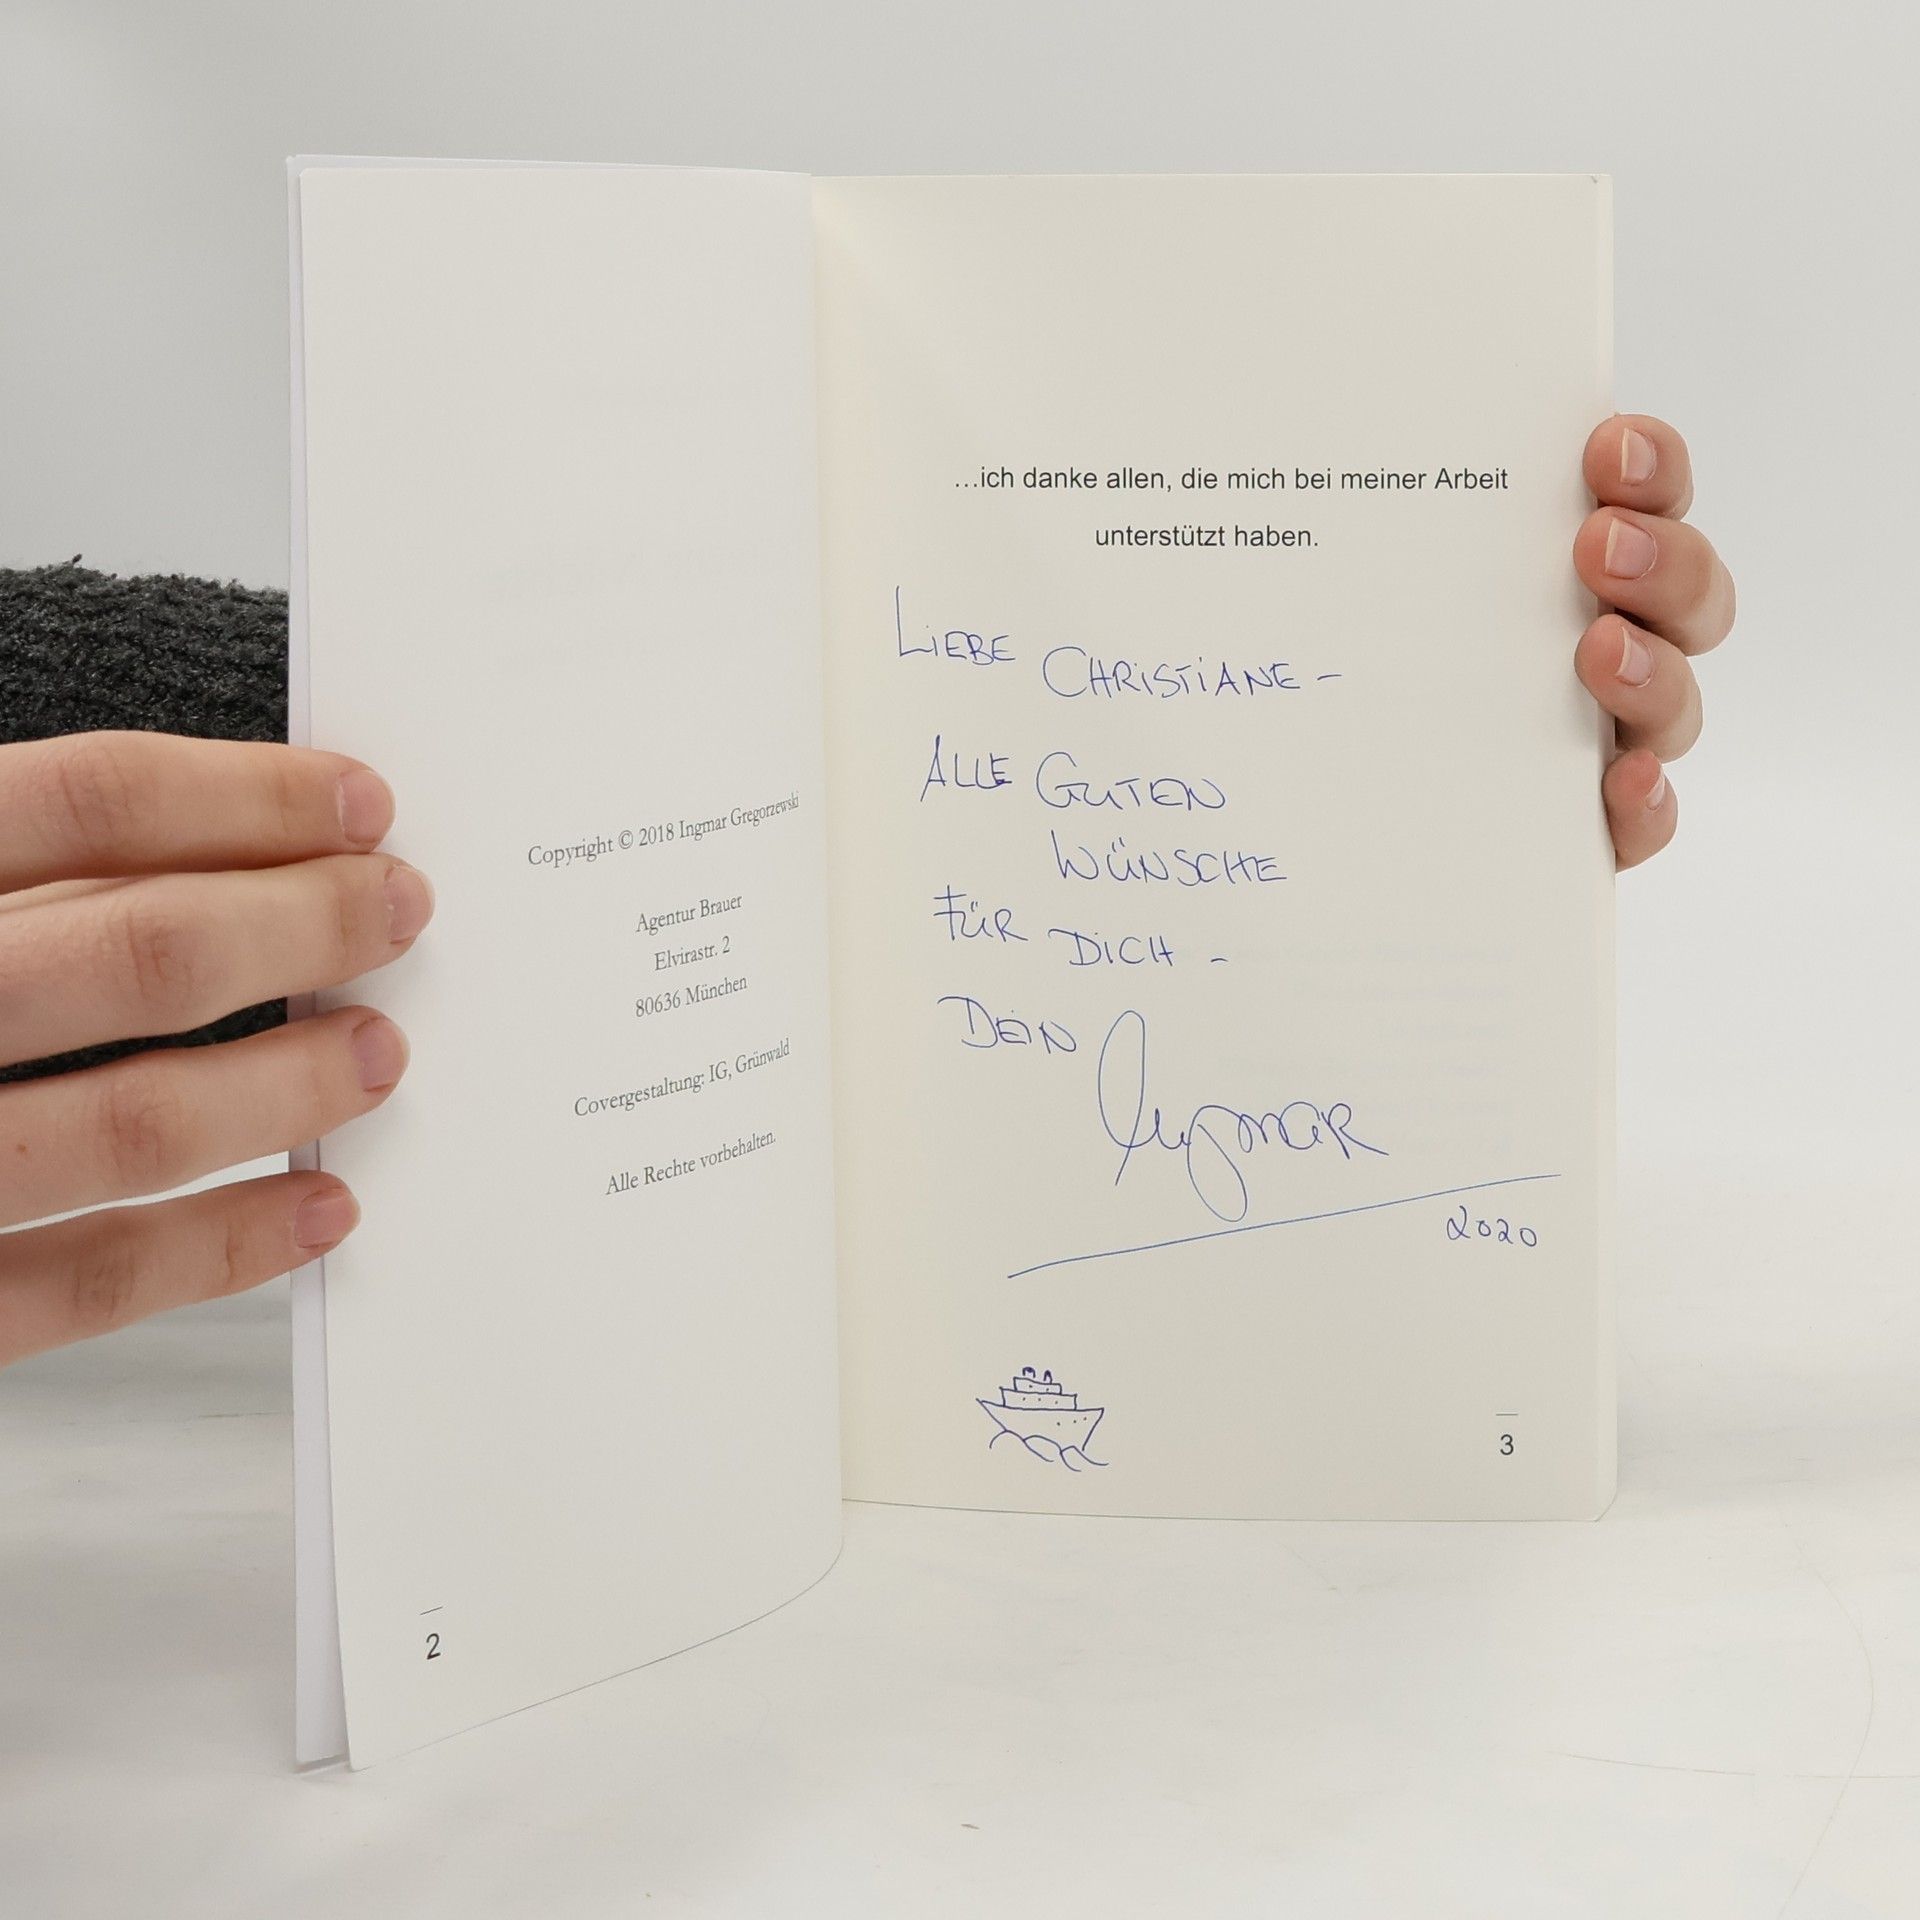 Copyright © 2018 Ingmar Gregorzewski
Agentur Brauer
Elvirastr. 2
80636 München
Covergestaltung: IG, Grünwald
Alle Rechte vorbehalten.
2
...ich danke allen, die mich bei meiner Arbeit
unterstützt haben.
LIEBE CHRISTIANE –
ALLE GUTEN
WÜNSCHE
FÜR DICH –
DEIN Ingmar
2020
3